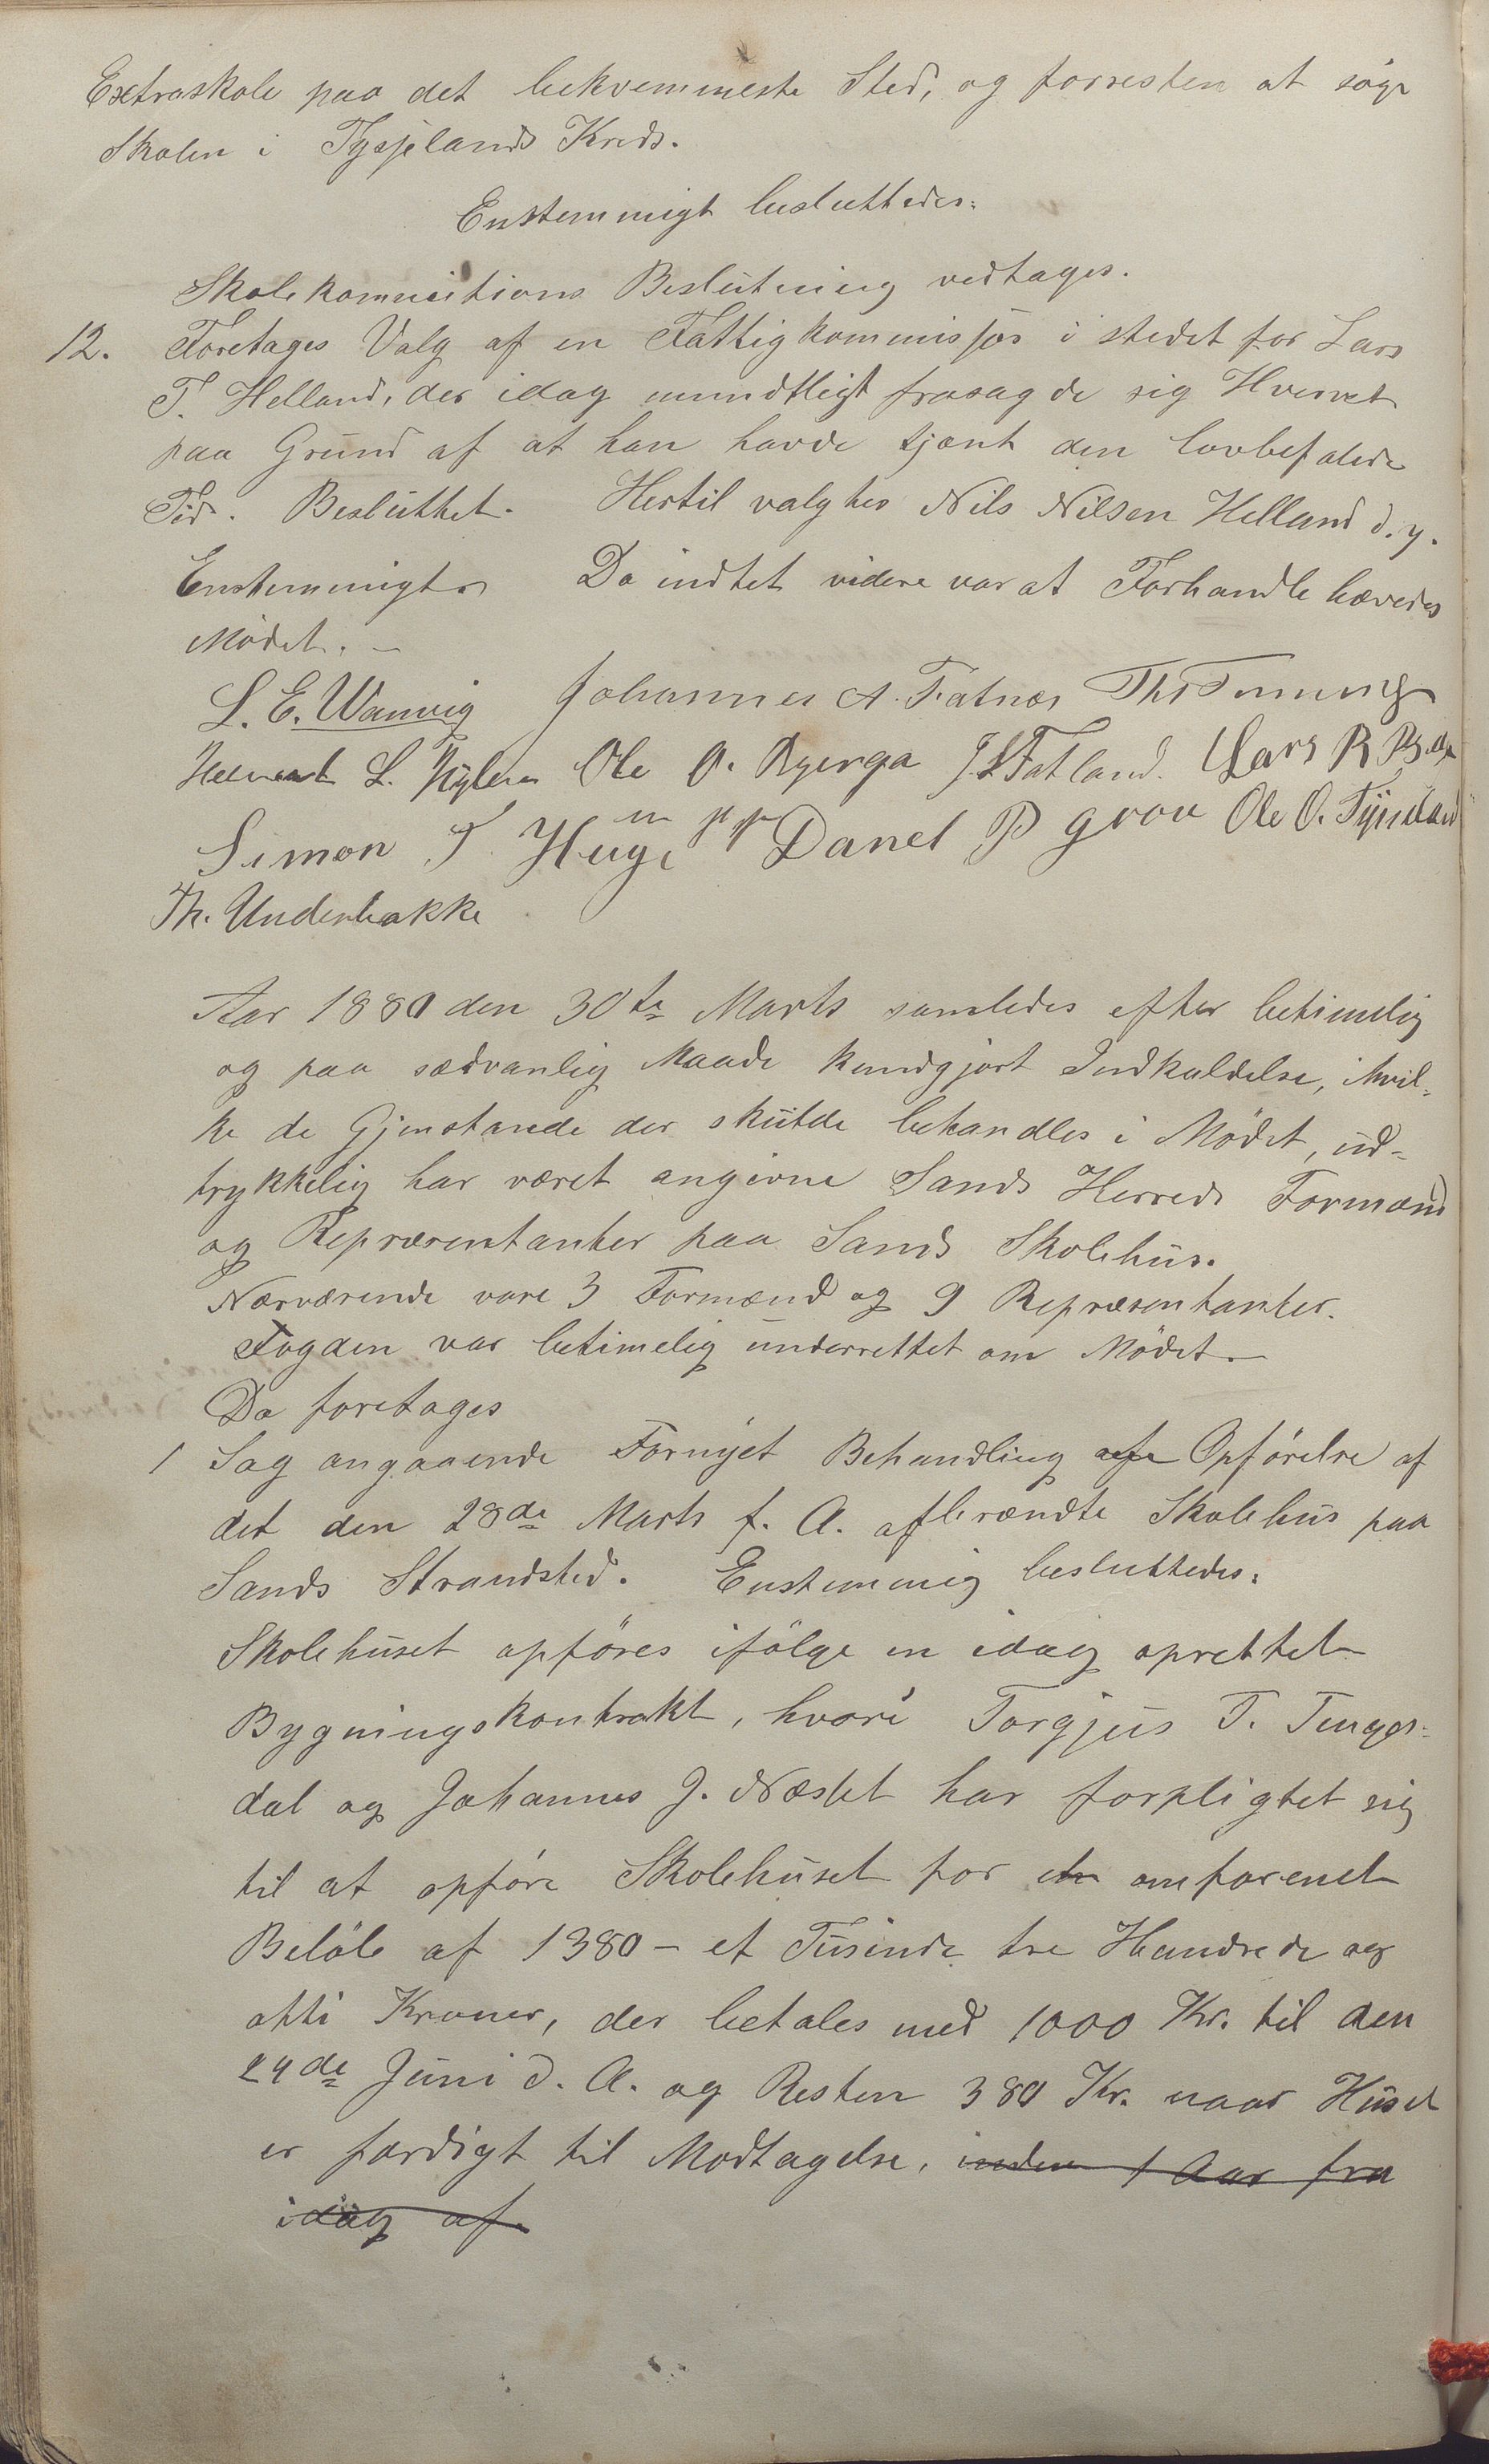 Extraskole paa det bekvemmeste Sted, og forresten at søge
Skolen i Tysjelands Kreds.
Enstemmigt besluttedes:
Skolekommitions Beslutning vedtages.
12. Foretages Valg af en Fattigkommissjør i stedet for Lars
T. Helland, der idag mundtligt frasagde sig Hvervet
paa Grund af at han havde tjent den lovbefalede
Tid. Besluttet. Hertil valgtes Nils Nilsen Helland d. y.
Enstemmigt. Da indtet videre var at Forhandle hævedes
Mødet. –
L. E. Wanvig Johannes A. Fatnes
L. Ole O. J. S Fatland. Lars R
Simon T. Huge Danel P grov Ole O.
Th. Underbakke
Aar 1880 den 30te Marts samledes efter betimelig
og paa sædvanlig Maade kundgjort Indkaldelse, i hvil-
ke de Gjenstande der skulde behandles i Mødet, ud-
trykkelig har været angivne Sands Herreds Formænd
og Repræsentanter paa Sands Skolehus.
Nærværende vare 3 Formænd og 9 Repræsentanter.
Fogden var betimelig underrettet om Mødet. –
Da foretages
1 Sag angaaende Fornyet Behandling Opførelse af
det den 28de Marts f. A. afbrændte Skolehus paa
Sands Strandsted. Enstemmig besluttedes:
Skolehuset opføres ifølge en idag oprettet
Bygningskontrakt, hvori Torgjus T. Tenges-
dal og Johannes J. Næstet har forpligtet sig
til at opføre Skolehuset for omforenet
Beløb af 1380 – et Tusinde tre Hundrede og
otti Kroner, der betales med 1000 Kr. til den
24de Juni d. A. og Resten 380 Kr. naar Huset
er færdigt til Modtagelse, inden 1 Aar fra
idag af.